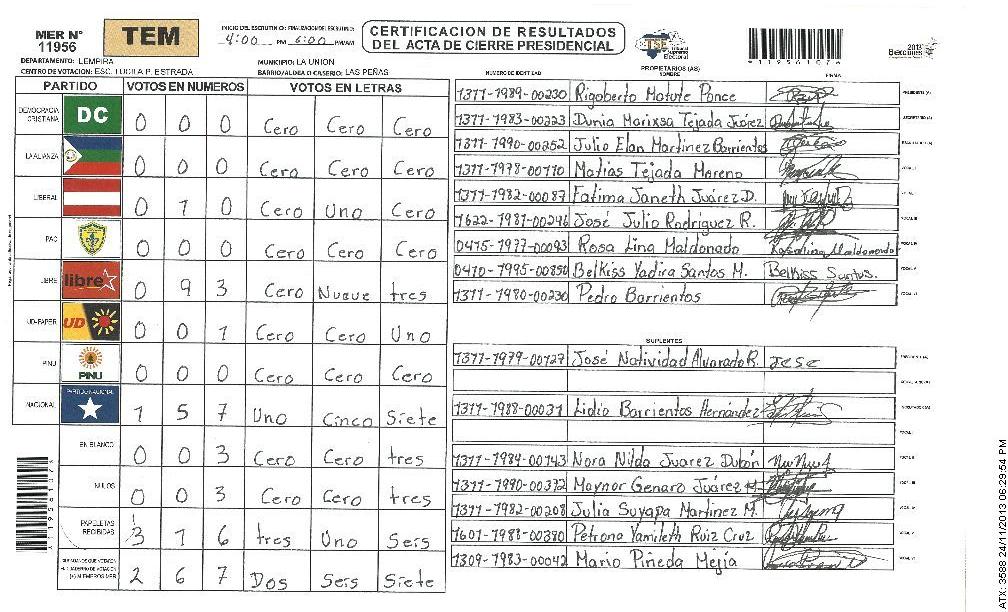 MER N° 11956
TEM
INICIO DEL ESCRUTINIO: FINALIZACION DEL ESCRUTINIO:
4:00 PM 6:00 PM/AM
CERTIFICACION DE RESULTADOS
DEL ACTA DE CIERRE PRESIDENCIAL
TSE Tribunal Supremo Electoral
2013
Elecciones
DEPARTAMENTO: LEMPIRA
MUNICIPIO: LA UNION
CENTRO DE VOTACION: ESC. LUCILA P. ESTRADA
BARRIO/ALDEA O CASERIO: LAS PEÑAS
NUMERO DE IDENTIDAD PROPIETARIOS (AS) NOMBRE FIRMA
PARTIDO VOTOS EN NUMEROS VOTOS EN LETRAS
DEMOCRACIA CRISTIANA DC 0 0 0 Cero Cero Cero
LA ALIANZA 0 0 0 Cero Cero Cero
LIBERAL 0 1 0 Cero Uno Cero
PAC 0 0 0 Cero Cero Cero
LIBRE libre 0 9 3 Cero Nueve tres
UD-FAPER UD 0 0 1 Cero Cero Uno
PINU PINU 0 0 0 Cero Cero Cero
NACIONAL PARTIDO NACIONAL 1 5 7 Uno Cinco Siete
EN BLANCO 0 0 3 Cero Cero tres
NULOS 0 0 3 Cero Cero tres
PAPELETAS RECIBIDAS 3 1 6 tres Uno Seis
2 6 7 Dos Seis Siete
1311-1989-00230 Rigoberto Matute Ponce
1311-1983-00223 Dunia Marixsa Tejada Juárez
1311-1990-00252 Julio Elan Martinez Barrientos
1311-1978-00110 Matias Tejada Moreno
1311-1982-00087 Fatima Janeth Juárez D.
1622-1987-00246 José Julio Rodríguez R.
0415-1977-00093 Rosa Lina Maldonado Rosalina Maldonado
0410-1995-00850 Belkiss Yadira Santos M. Belkiss Santos.
1311-1980-00230 Pedro Barrientos
SUPLENTES
1311-1979-00127 José Natividad Alvarado R. Jose
1311-1988-00031 Lidio Barrientos Hernández
1311-1984-00143 Nora Nilda Juarez Dubón
1311-1990-00372 Maynor Genaro Juárez M.
1311-1982-00208 Julia Suyapa Martinez M.
1601-1988-00380 Petrona Yamileth Ruiz Cruz
1309-1983-00042 Mario Piñeda Mejía
ATX: 3588 24/11/2013 06:29:54 PM